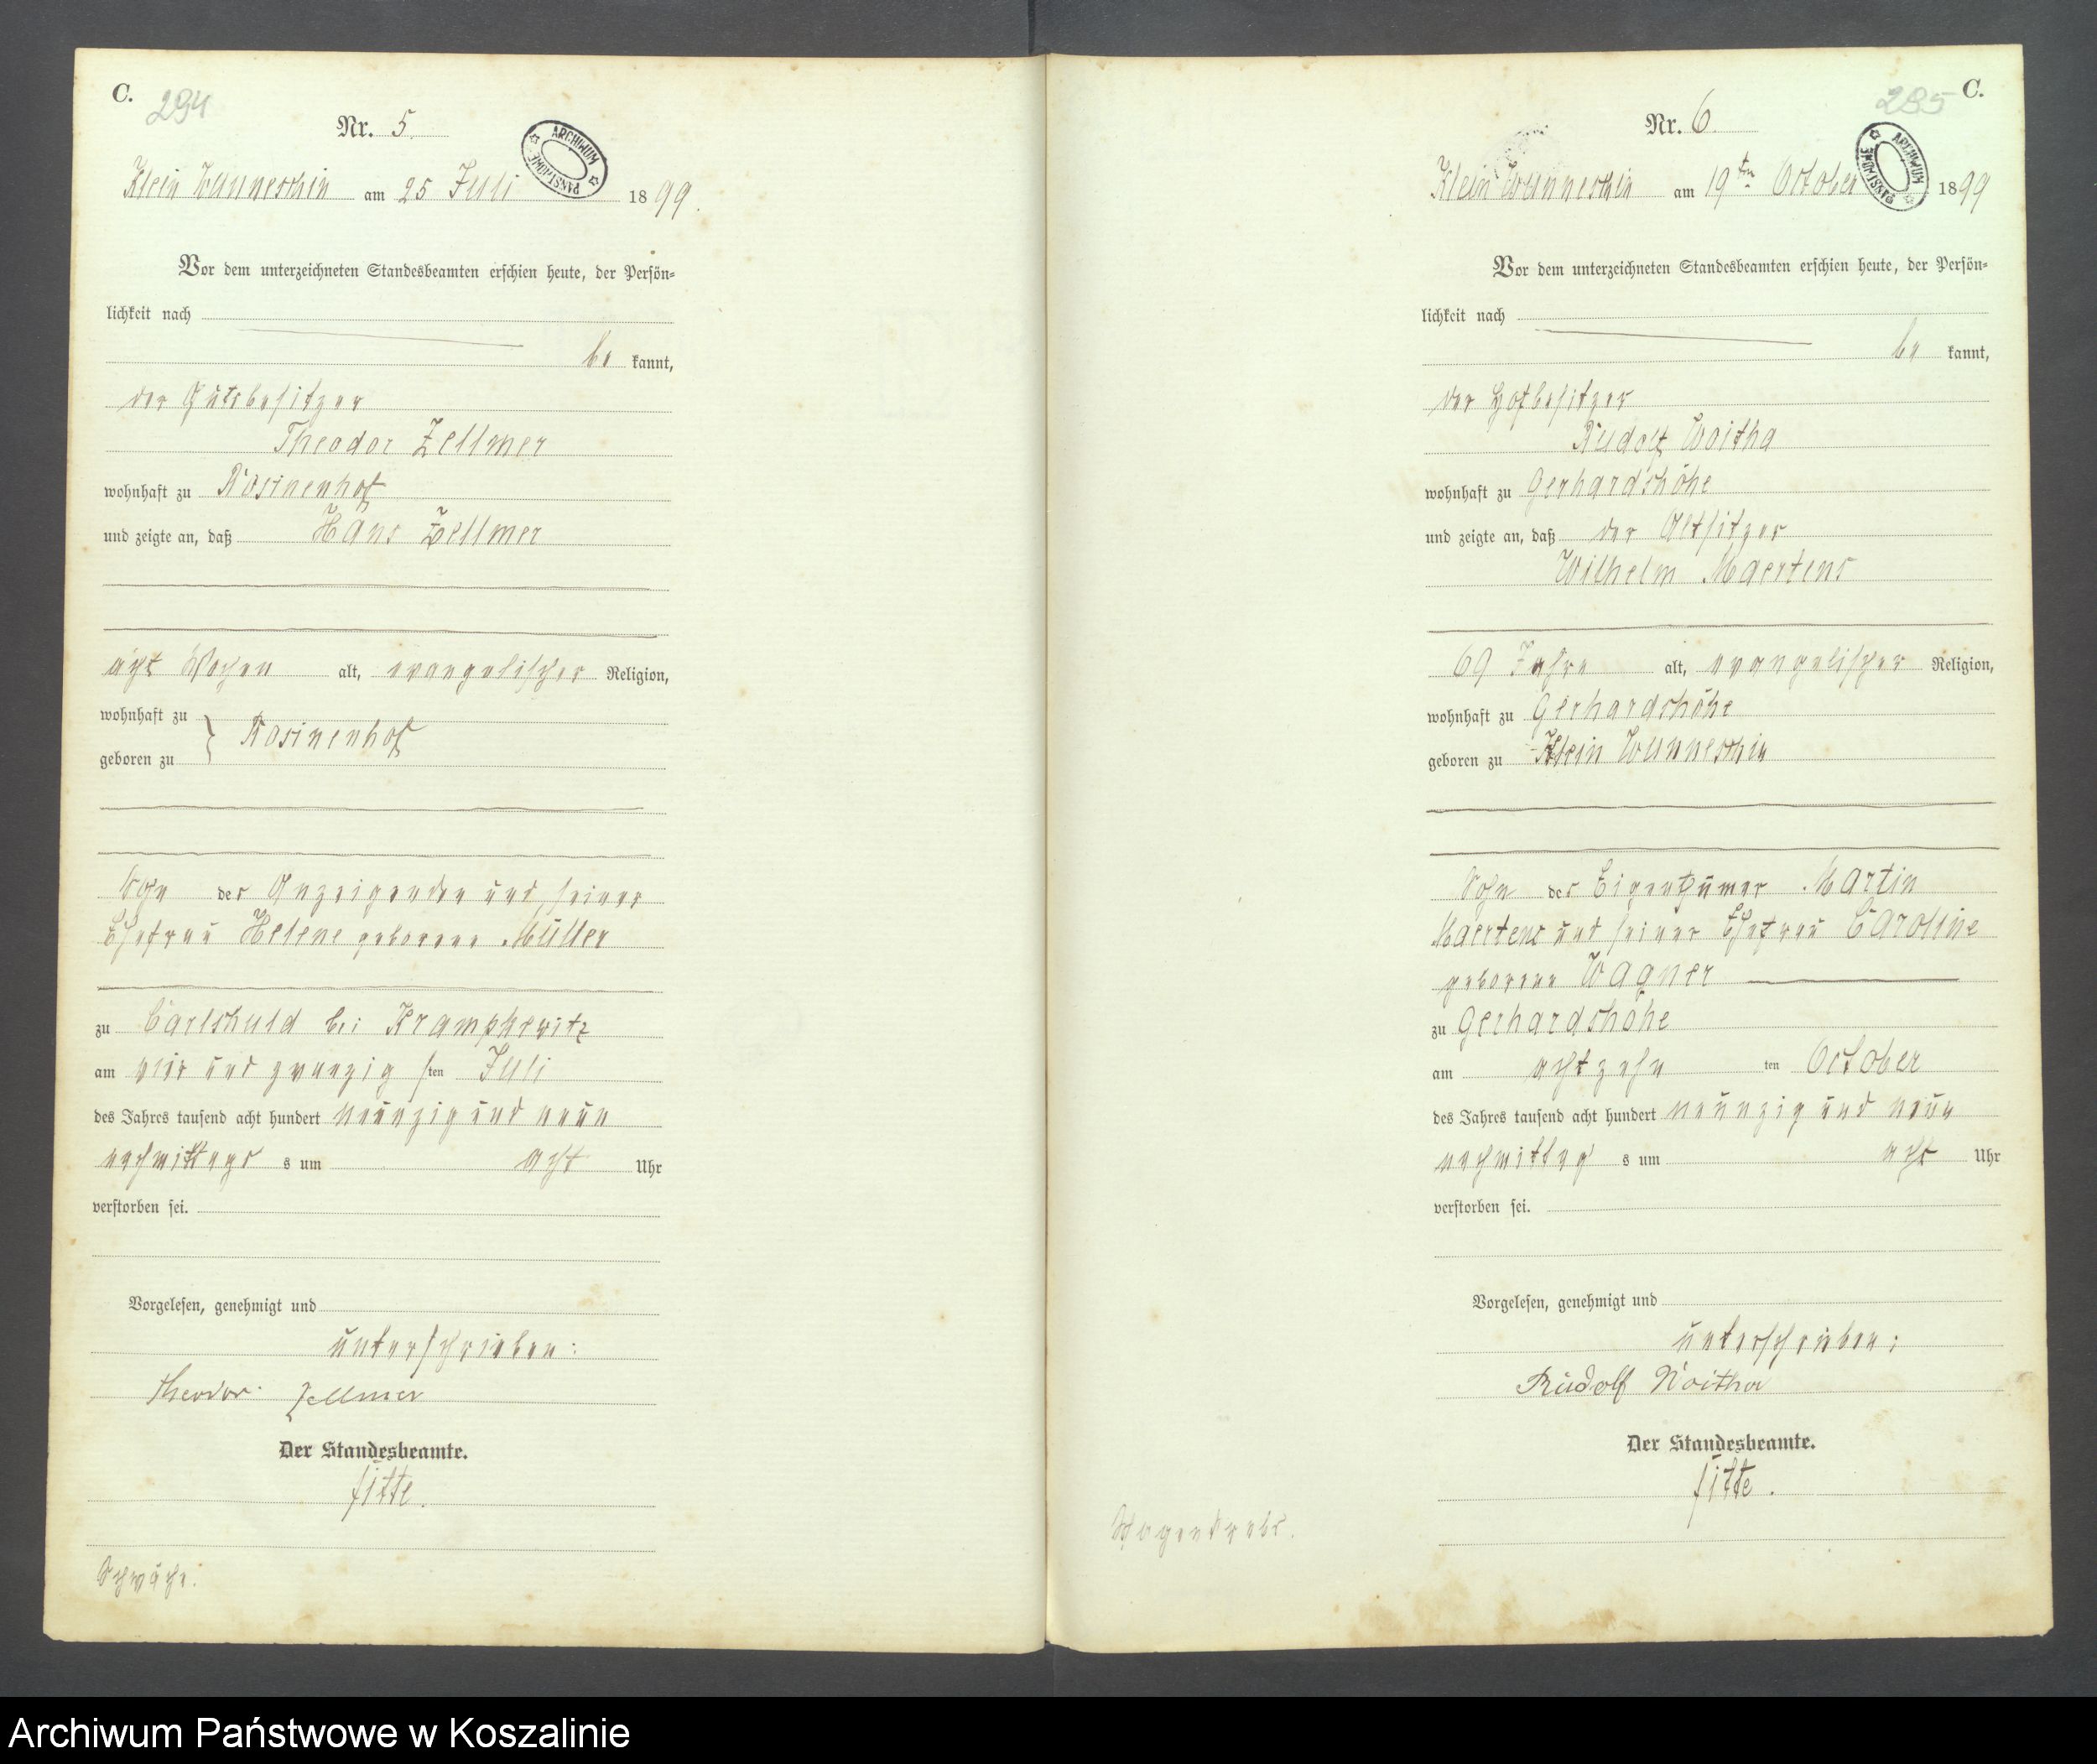 C.
294
Nr. 5.
ARCHIWUM PAŃSTWOWE
Klein Wunneschin am 25 Juli 1899.
Vor dem unterzeichneten Standesbeamten erschien heute, der Persön=
lichkeit nach
be kannt,
der Gutsbesitzer
Theodor Zellmer
wohnhaft zu Rosinenhof
und zeigte an, daß Hans Zellmer
acht Wochen alt, evangelischer Religion,
wohnhaft zu
} Rosinenhof
geboren zu
Sohn des Anzeigenden und seiner
Ehefrau Helene geborene Müller
zu Carlshuld bei Krampkewitz
am vier und zwanzig sten Juli
des Jahres tausend acht hundert neunzig und neun
nachmittags s um acht Uhr
verstorben sei.
Vorgelesen, genehmigt und
unterschrieben:
Theodor Zellmer
Der Standesbeamte.
Fitte.
Schwäche.
C.
295
Nr. 6.
ARCHIWUM PAŃSTWOWE
Klein Wunneschin am 19ten October 1899
Vor dem unterzeichneten Standesbeamten erschien heute, der Persön=
lichkeit nach
be kannt,
der Hofbesitzer
Rudolf Woitha
wohnhaft zu Gerhardshöhe
und zeigte an, daß der Altsitzer
Wilhelm Maertens
69 Jahre alt, evangelischer Religion,
wohnhaft zu Gerhardshöhe
geboren zu Klein Wunneschin
Sohn des Eigenthümer Martin
Maertens und seiner Ehefrau Caroline
geborene Wagner
zu Gerhardshöhe
am achtzehn ten October
des Jahres tausend acht hundert neunzig und neun
nachmittag s um acht Uhr
verstorben sei.
Vorgelesen, genehmigt und
unterschrieben:
Rudolf Woitha
Der Standesbeamte.
Fitte.
Magenkrebs.
Archiwum Państwowe w Koszalinie